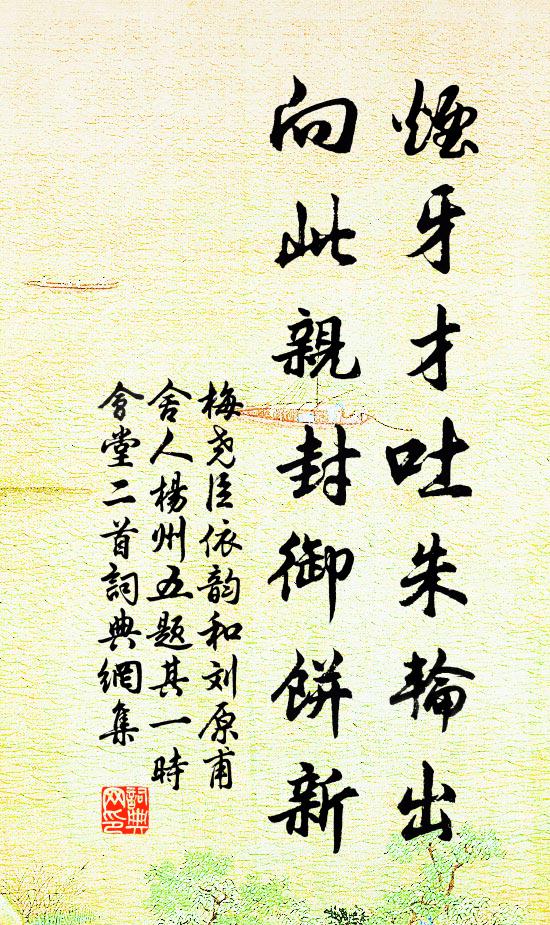 煙牙才吐朱輪出
向此親封御餅新
梅尧臣依韵和刘原甫
舍人楊州五題其一時
會堂二首詞典網集
詞典网印